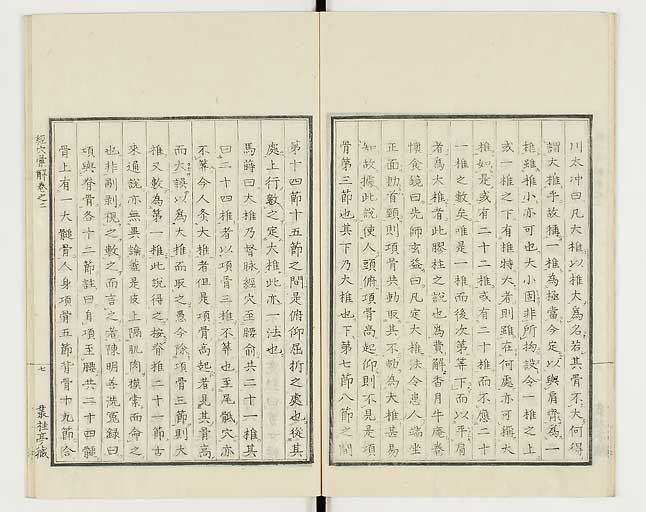 川太冲曰凡大椎以椎大爲名若其骨不大何得
謂大椎乎故稱一椎為極當今定以與肩齊為一
椎雖椎小亦可也大小固非所拘設令一椎之上
或一椎之下有椎特大者則雖在何處亦可稱大
椎如是或有二十二椎或有二十椎而不應二十
一椎之數矣唯是一椎而後次第等下而以平肩
者為大椎者此膠柱之說也為費解香月牛庵卷
懷食鏡曰先師玄益曰凡定大椎法令患人端坐
正面動首頸則項骨共動取其不動為大椎甚易
知故據此說使人頭俯項骨高起仰則不見是項
骨第三節也其下乃大椎也下第七節八節之間
第十四節十五節之間是俯仰屈折之處也從其
處上行數之定大椎此亦一法也
馬蒔曰大椎乃督脉經穴至腰俞共二十一椎其
曰二十四椎者以項骨三椎不筭也至尾骶穴亦
不筭今人灸大椎者但是項骨高起者是其骨高
而大誤以為大椎而取之愚今除項骨三節則大
椎又數為第一椎此說得之按脊椎二十一節古
來通說亦無異論蓋是皮上隔肌肉摸索而侖之
也非剮剥視之數之而言之者陳明善洗冤録曰
項與脊骨各十二節註曰自項至腰共二十四髓
骨上有一大髓骨人身項骨五節背骨十九節合
經穴彙解卷之二
七
叢桂亭藏